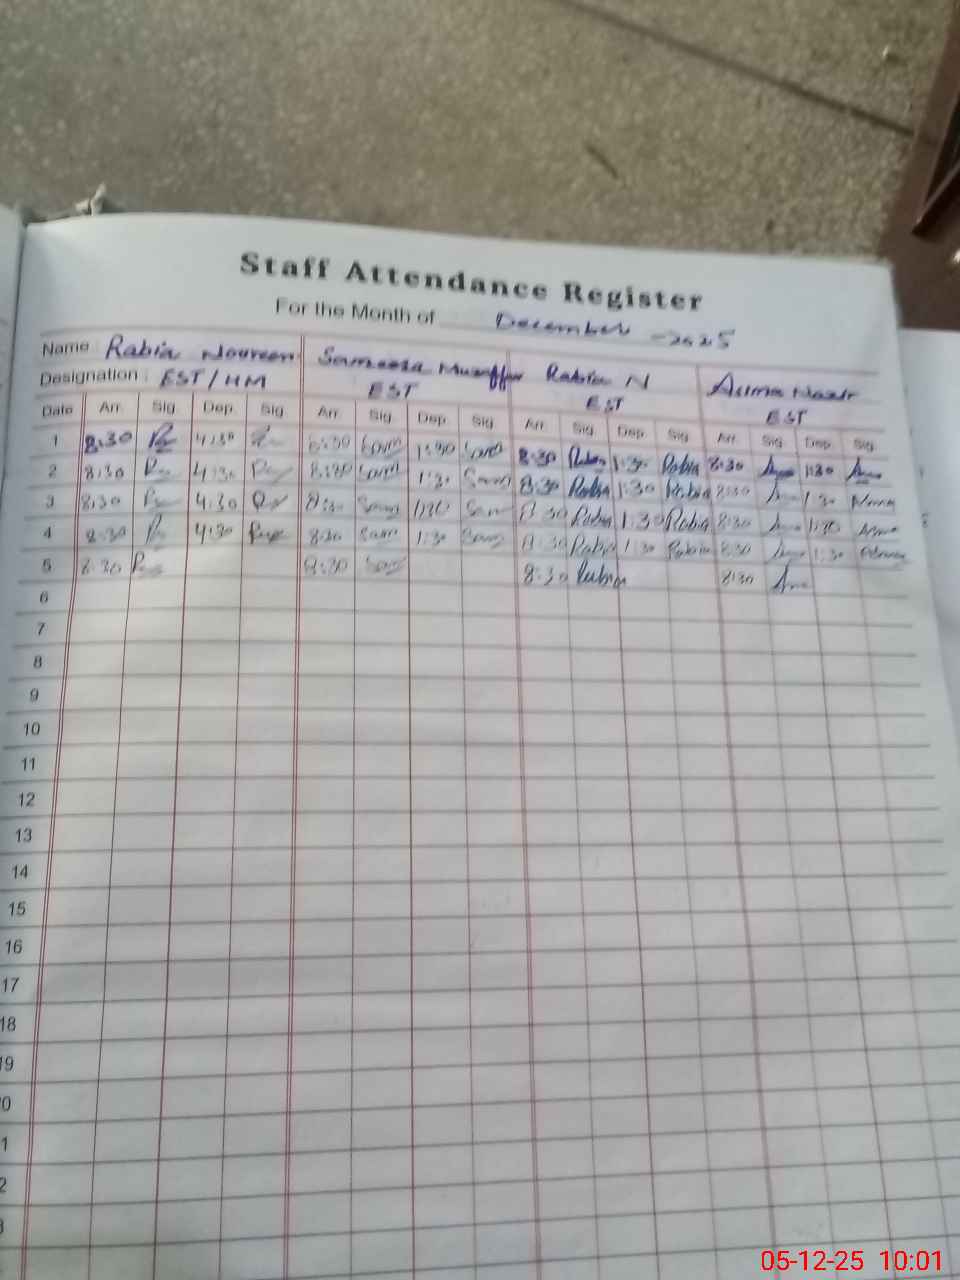 Staff Attendance Register
For the Month of December - 2025
Name Rabia Noureen Sameera Muzaffar Rabia N Asma Nazir
Designation : EST/HM EST EST EST
Date Arr. Sig. Dep. Sig. Arr. Sig. Dep. Sig. Arr. Sig. Dep. Sig. Arr. Sig. Dep. Sig.
1 8:30 4:30 8:30 Sam 1:30 Sam 8:30 Rabia 1:30 Rabia 8:30 1:30
2 8:30 4:30 8:30 Sam 1:30 Sam 8:30 Rabia 1:30 Rabia 8:30 1:30
3 8:30 4:30 8:30 Sam 1:30 Sam 8:30 Rabia 1:30 Rabia 8:30 1:30
4 8:30 4:30 8:30 Sam 1:30 Sam 8:30 Rabia 1:30 Rabia 8:30 1:30
5 8:30 8:30 Sam 8:30 Rabia 8:30
6
7
8
9
10
11
12
13
14
15
16
17
18
19
0
1
2
3
05-12-25 10:01